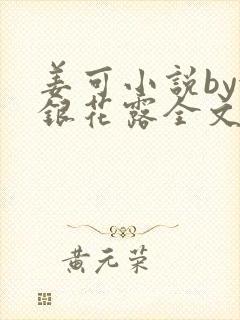 姜可小説by
銀花露全文
黄元荣